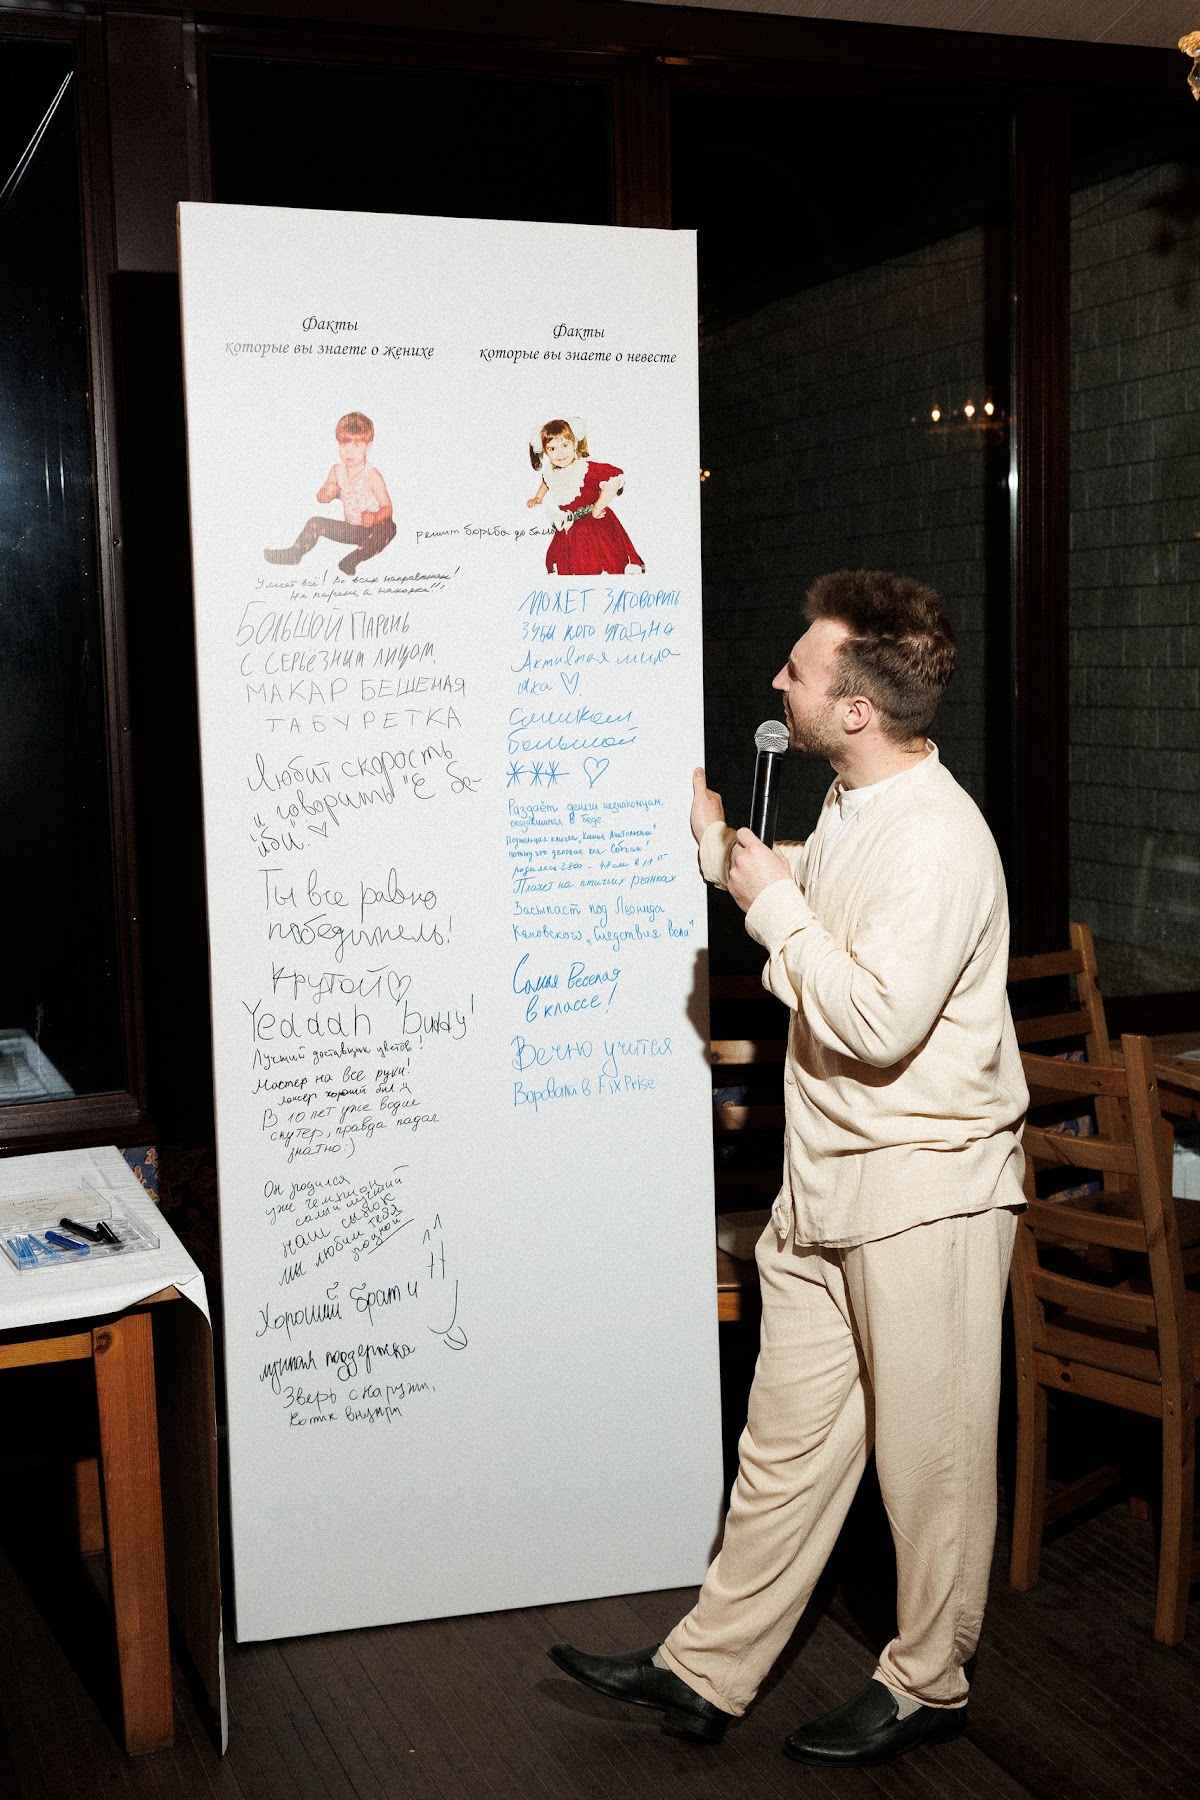 Факты
которые вы знаете о женихе
Умеет всё! Во всех направлениях!
Не парень, а находка!!!
БОЛЬШОЙ ПАРЕНЬ
С СЕРЬЁЗНЫМ ЛИЦОМ.
МАКАР БЕШЕНАЯ
ТАБУРЕТКА
Любит скорость
и говорить "Ё бе-
йби". ♡
Ты все равно
победитель!
Крутой ♡
Yeaaah buddy!
Лучший доставщик цветов!
Мастер на все руки!
лансер хороший был
В 10 лет уже водил
скутер, правда падал
знатно:)
Он родился
уже чемпион
самый лучший
наш сынок
мы любим тебя
родной
Хороший брат и
лучшая поддержка
Зверь снаружи,
котик внутри
Факты
которые вы знаете о невесте
решит борьба до
МОЖЕТ ЗАГОВОРИТЬ
ЗУБЫ КОГО УГОДНО
Активная мила
яха ♡.
Слишком
большой
*** ♡
Раздаёт деньги незнакомцам,
оказавшимся в беде
Подпольная кличка "Ксения Анатольевна"
потому что деловая как Собчак!
родилась 2800 - 48 см в
Плачет на птичьих рынках
Засыпает под Леонида
Каневского "Следствия вели"
Самая веселая
в классе!
Вечно учится
Воровали в FixPrise